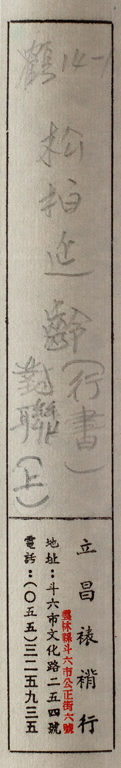 顏14-1
松柏延齡(行書)
對聯(上)
立昌裱褙行
雲林縣斗六市公正街六號
地址：斗六市文化路二五四號
電話：(〇五五)三二五九三五